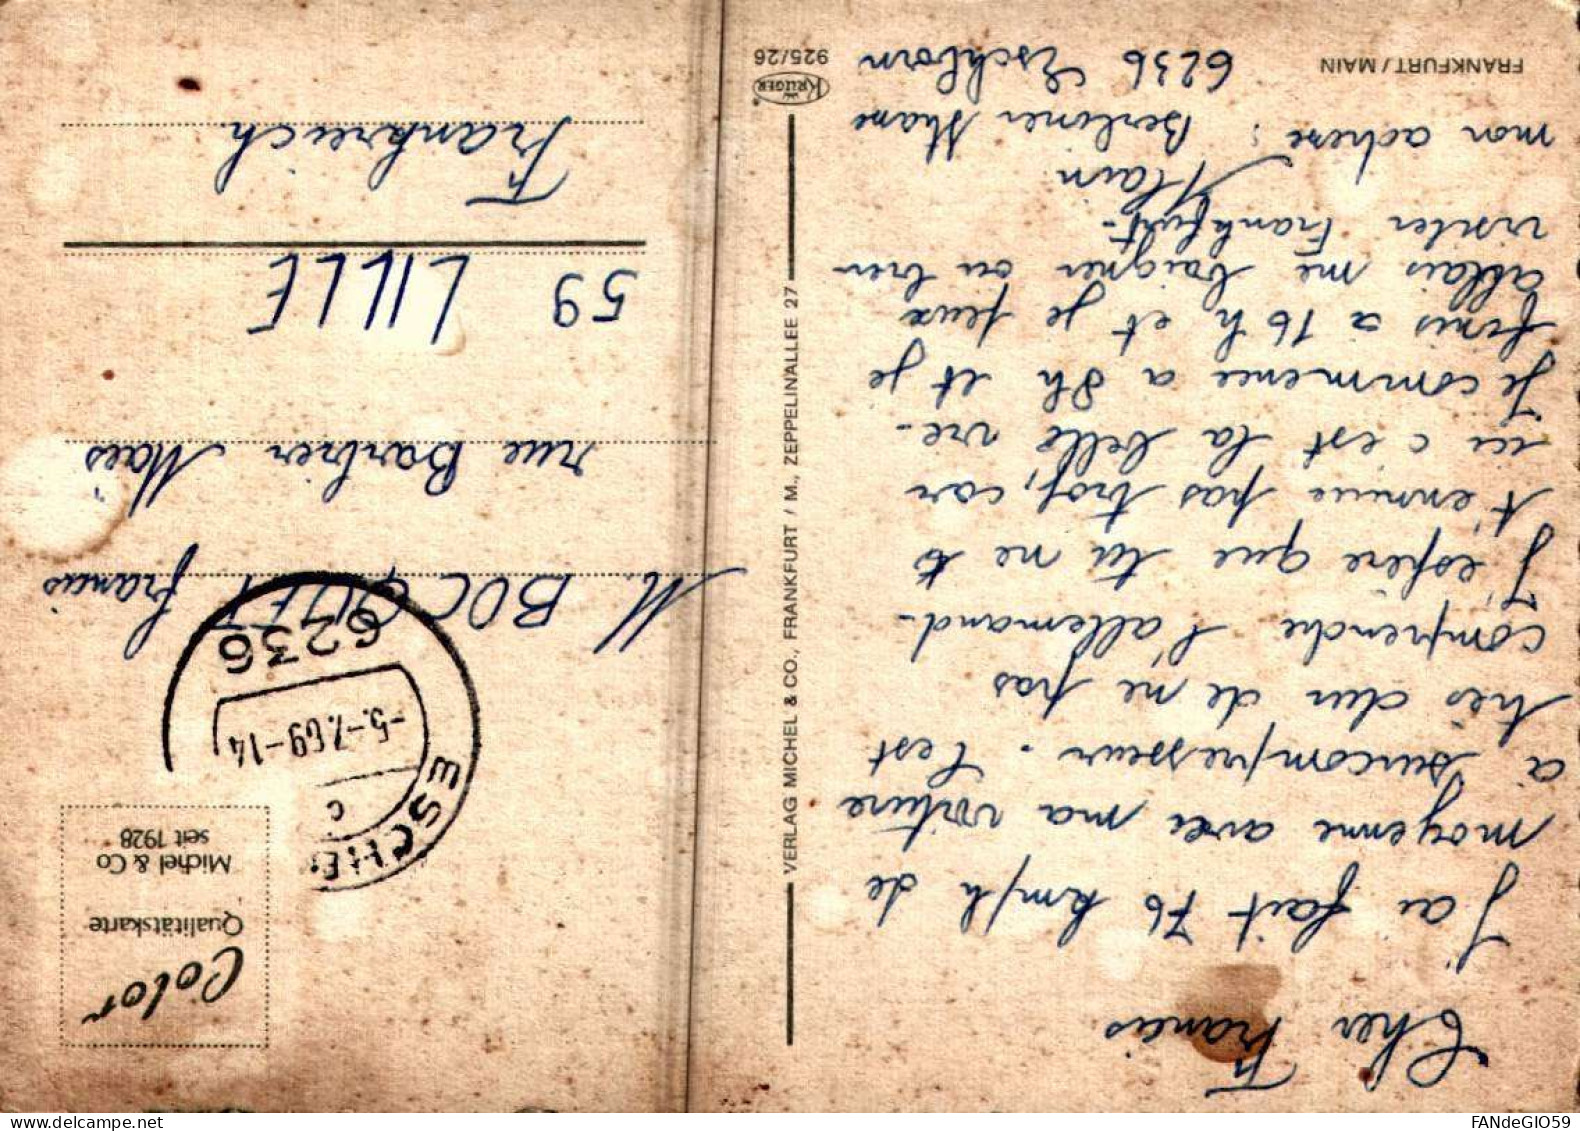 Cher Francis
J'ai fait 76 km/h de
moyenne avec ma voiture
à surcompresseur. C'est
très dur de ne pas
comprendre l'allemand-
J'espère que tu ne t
t'ennuie pas trop, car
ici c'est la belle vie-
Je commence a 8h et je
finis a 16h et je peux
allais me baigner ou bien
visiter Frankfurt-
Alain
mon adresse : Berliner Strasse
6236 Eschborn
FRANKFURT / MAIN
KRÜGER
925/26
VERLAG MICHEL & CO., FRANKFURT / M., ZEPPELINALLEE 27
Color
Qualitätskarte
Michel & Co
seit 1928
ESCHB
c
-5.-7.69-14
6236
M. BOCQUET Francis
rue Barbier Maës
59 LILLE
Frankreich
www.delcampe.net
FANdeGIO59